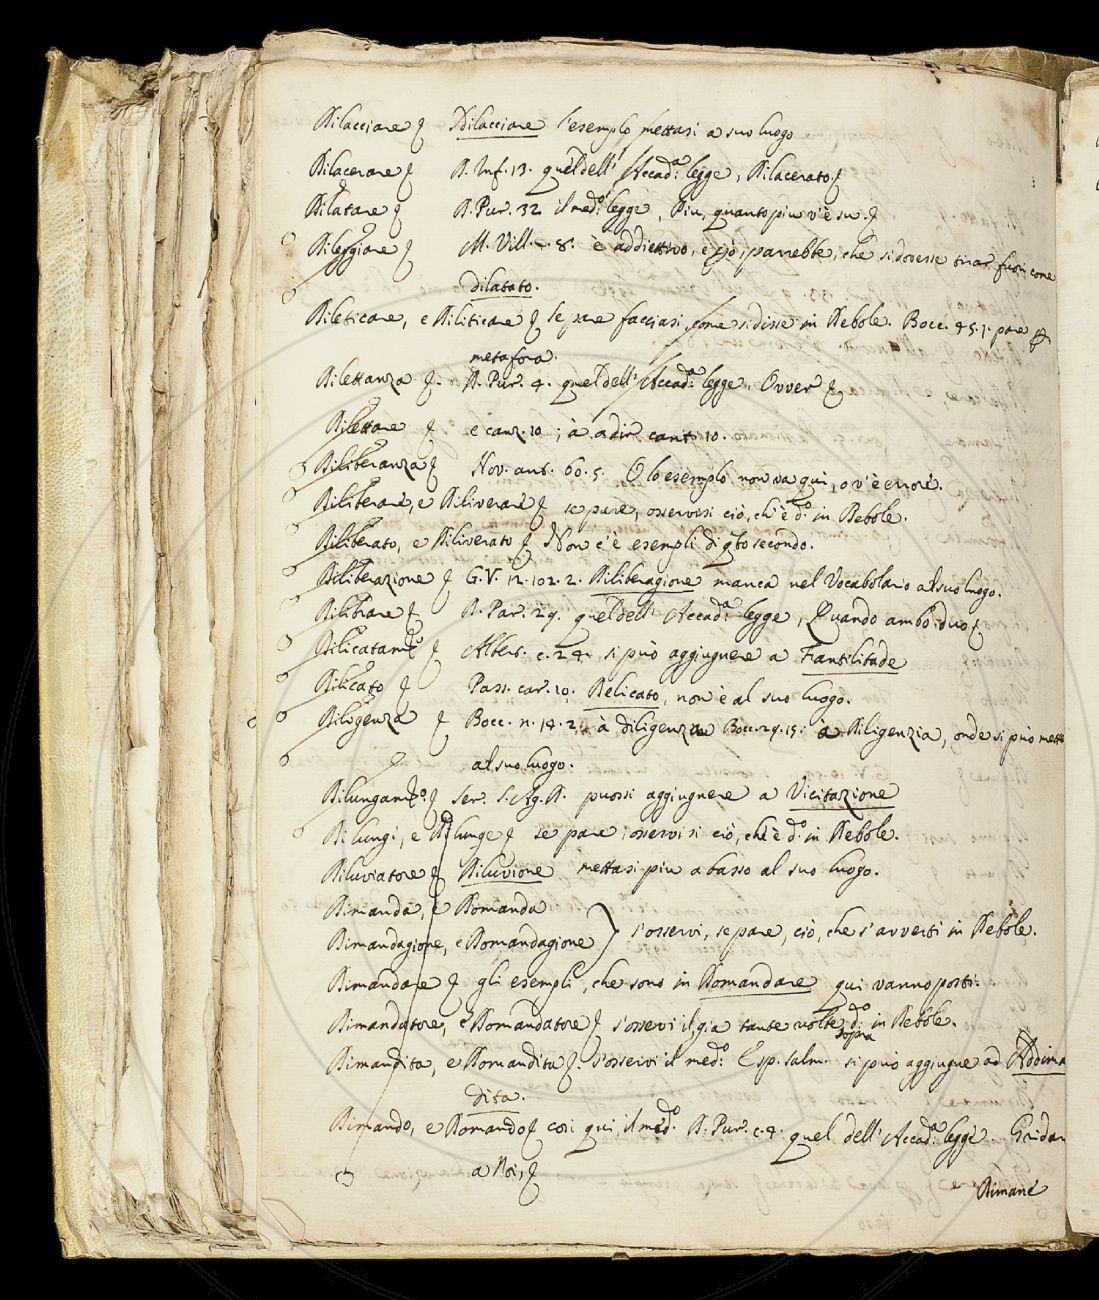 Rilacciare Dilacciare l'esemplo mettasi a suo luogo
Rilacerare D. Inf. 13. quel dell' Accad.ª legge, Rilacerato
Rilatare D. Pur. 32 il med.º legge, Piu, quanto piu v'è su.
Rileggiare M. Vill. 8. è addiettivo, e ciò, parrebbe, che si dovesse tirar fuori come
dilatato.
Rileticare, e Riliticare se pare facciasi, come si disse in Rebole. Bocc. 45.1. pare
metafora.
Rilettanza D. Pur. 4. quel dell' Accad.ª legge, Ovver
Rilettare è canz. 10; à a dir cant. 10.
Riliberanza Nov. ant. 60. 5. O lo esemplo non va qui, o v'è errore.
Riliberare, e Riliverare se pare, osservisi ciò, ch'è d.º in Rebole.
Riliberato, e Riliverato Non c'è esempli di q̃to secondo.
Riliberazione G. V. 12. 102. 2. Riliberagione manca nel Vocabolario al suo luogo.
Rilibrare D. Par. 29. quel dell' Accad.ª legge, Quando ambo duo
Rilicatam.º Albert. c. 24. si può aggiugnere a Fantilitade
Rilicato Pass. car. 10. Relicato, non è al suo luogo.
Riligenza Bocc. n. 14. 2. à diligenza Bocc. 29. 15. à Riligenzia, onde si può mett
al suo luogo.
Rilungam.º Ser. S. Ag. D. puossi aggiugnere a Vicitazione
Rilungi, e Rilunge se pare, osservisi ciò, ch'è d.º in Rebole.
Riluviatore Riluvione mettasi piu a basso al suo luogo.
Rimanda, e Romanda
Rimandagione, e Romandagione s'osservi, se pare, ciò, che s'avverti in Rebole.
Rimandare gli esempli, che sono in Romandare qui vanno posti.
Rimandatore, e Romandatore s'osservi il già tante volte d.º in Rebole.
sopra
Rimandita, e Romandita s'osservi il med.º Esp. salm. si può aggiugne ad Addima
dita.
Rimando, e Romando cosi qui, il med.º D. Pur. c. 4. quel dell' Accad.ª legge Gridar
a Noi,
Rimane